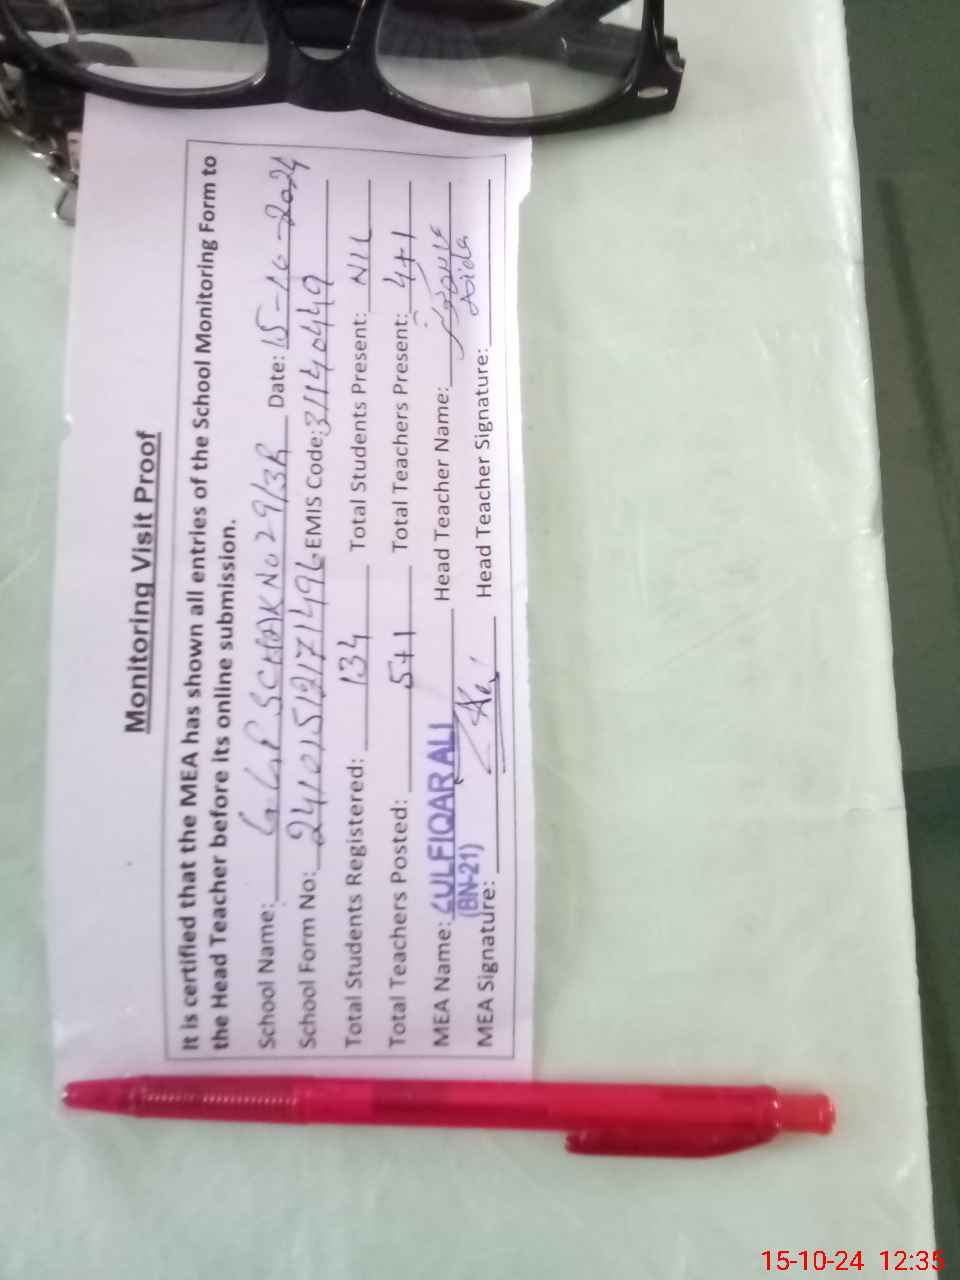 Monitoring Visit Proof
It is certified that the MEA has shown all entries of the School Monitoring Form to
the Head Teacher before its online submission.
School Name: GGPS CHAK No 29/3R Date: 15-10-2024
School Form No: EMIS Code: 31140449
Total Students Registered: 134 Total Students Present: NIL
Total Teachers Posted: 5+1 Total Teachers Present: 4+1
MEA Name: ZULFIQAR ALI Head Teacher Name:
(BN-21)
MEA Signature: Head Teacher Signature:
15-10-24 12:35